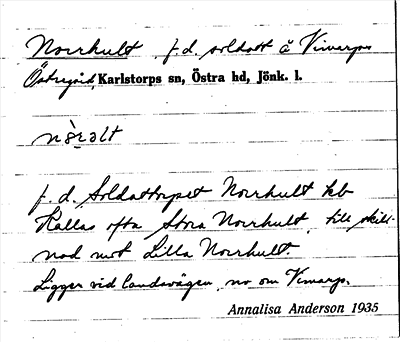 Norrhult f.d. soldatt å Vimarps
Östregård, Karlstorps sn, Östra hd, Jönk. l.
f.d. Soldattorpet Norrhult kb
Kallas ofta Stora Norrhult, till skill-
nad mot Lilla Norrhult.
Ligger vid landsvägen, no om Vimarp.
Annalisa Anderson 1935